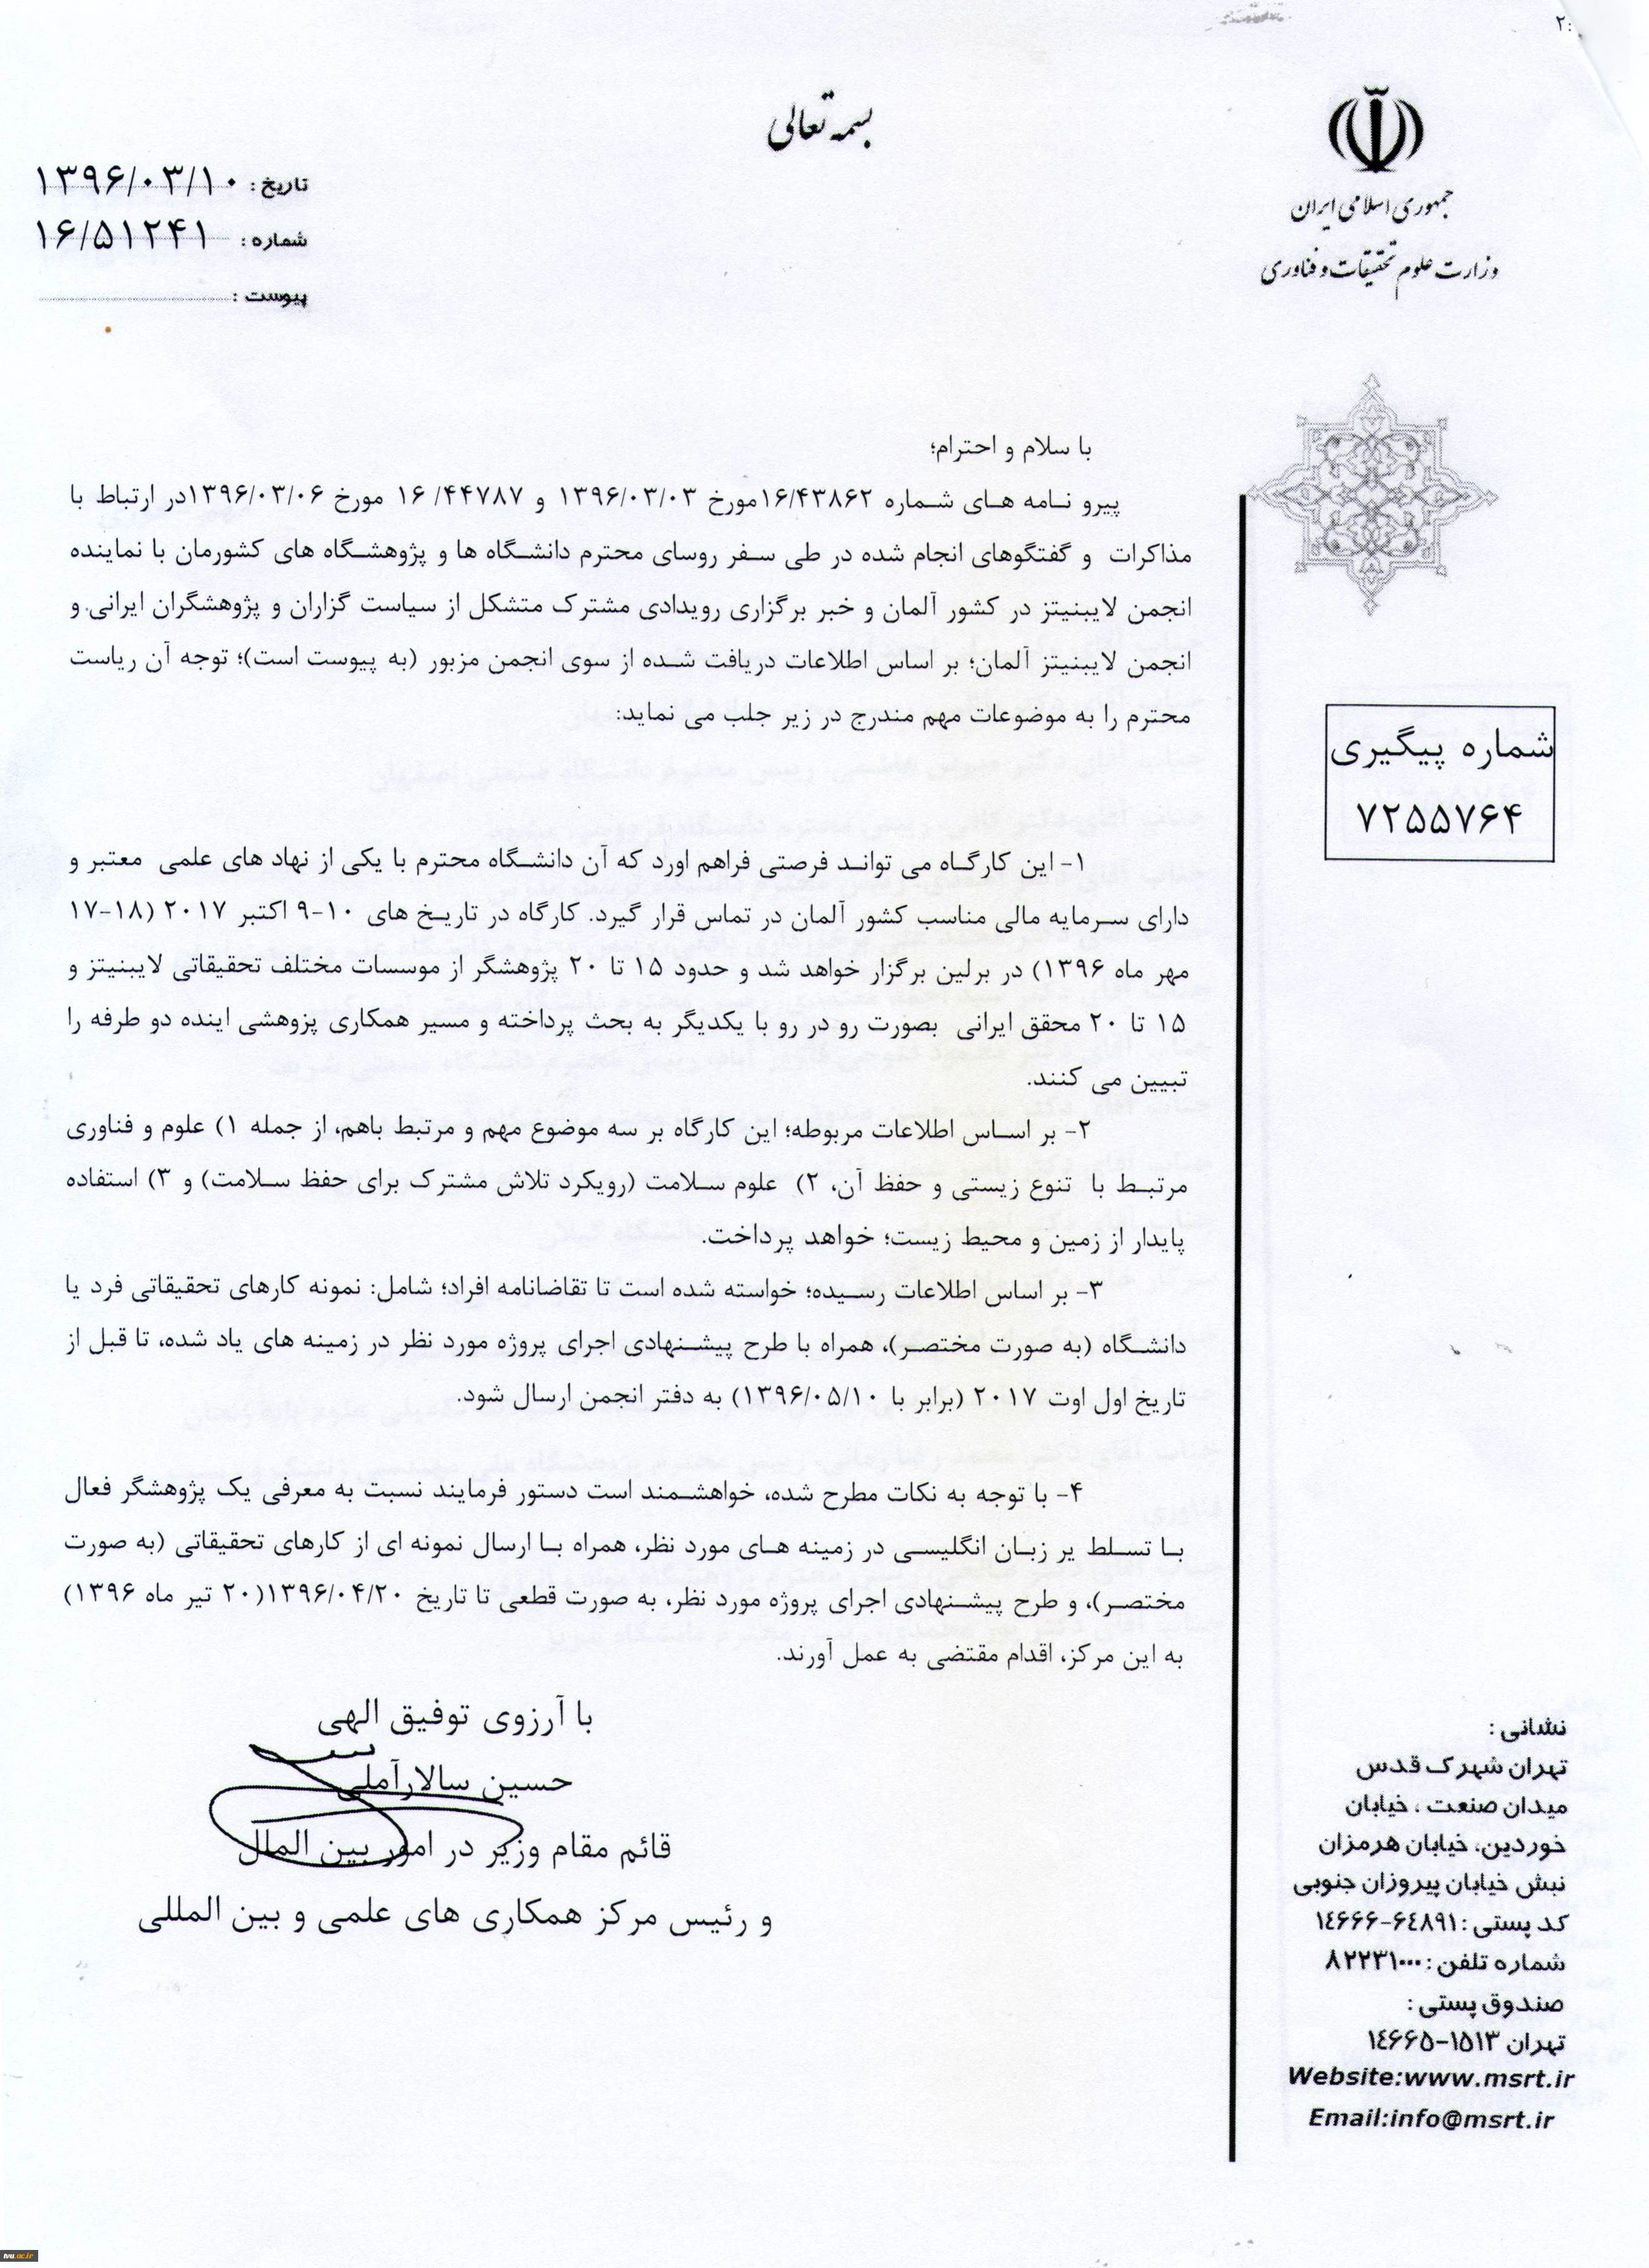 ۲:
بسمه تعالی
جمهوری اسلامی ایران
وزارت علوم تحقیقات و فناوری
تاریخ : ۱۳۹۶/۰۳/۱۰
شماره : ۱۶/۵۱۲۴۱
پیوست :
با سلام و احترام؛
پیرو نامه های شماره ۱۶/۴۳۸۶۲مورخ ۱۳۹۶/۰۳/۰۳ و ۱۶/۴۴۷۸۷ مورخ ۱۳۹۶/۰۳/۰۶در ارتباط با
مذاکرات و گفتگوهای انجام شده در طی سفر روسای محترم دانشگاه ها و پژوهشگاه های کشورمان با نماینده
انجمن لایبنیتز در کشور آلمان و خبر برگزاری رویدادی مشترک متشکل از سیاست گزاران و پژوهشگران ایرانی و
انجمن لایبنیتز آلمان؛ بر اساس اطلاعات دریافت شده از سوی انجمن مزبور (به پیوست است)؛ توجه آن ریاست
محترم را به موضوعات مهم مندرج در زیر جلب می نماید:
شماره پیگیری
۷۲۵۵۷۶۴
۱- این کارگاه می تواند فرصتی فراهم اورد که آن دانشگاه محترم با یکی از نهاد های علمی معتبر و
دارای سرمایه مالی مناسب کشور آلمان در تماس قرار گیرد. کارگاه در تاریخ های ۱۰-۹ اکتبر ۲۰۱۷ (۱۸-۱۷
مهر ماه ۱۳۹۶) در برلین برگزار خواهد شد و حدود ۱۵ تا ۲۰ پژوهشگر از موسسات مختلف تحقیقاتی لایبنیتز و
۱۵ تا ۲۰ محقق ایرانی بصورت رو در رو با یکدیگر به بحث پرداخته و مسیر همکاری پزوهشی اینده دو طرفه را
تبیین می کنند.
۲- بر اساس اطلاعات مربوطه؛ این کارگاه بر سه موضوع مهم و مرتبط باهم، از جمله ۱) علوم و فناوری
مرتبط با تنوع زیستی و حفظ آن، ۲) علوم سلامت (رویکرد تلاش مشترک برای حفظ سلامت) و ۳) استفاده
پایدار از زمین و محیط زیست؛ خواهد پرداخت.
۳- بر اساس اطلاعات رسیده؛ خواسته شده است تا تقاضانامه افراد؛ شامل: نمونه کارهای تحقیقاتی فرد یا
دانشگاه (به صورت مختصر)، همراه با طرح پیشنهادی اجرای پروژه مورد نظر در زمینه های یاد شده، تا قبل از
تاریخ اول اوت ۲۰۱۷ (برابر با ۱۳۹۶/۰۵/۱۰) به دفتر انجمن ارسال شود.
۴- با توجه به نکات مطرح شده، خواهشمند است دستور فرمایند نسبت به معرفی یک پژوهشگر فعال
با تسلط یر زبان انگلیسی در زمینه های مورد نظر، همراه با ارسال نمونه ای از کارهای تحقیقاتی (به صورت
مختصر)، و طرح پیشنهادی اجرای پروژه مورد نظر، به صورت قطعی تا تاریخ ۱۳۹۶/۰۴/۲۰(۲۰ تیر ماه ۱۳۹۶)
به این مرکز، اقدام مقتضی به عمل آورند.
با آرزوی توفیق الهی
حسین سالارآملی
قائم مقام وزیر در امور بین الملل
و رئیس مرکز همکاری های علمی و بین المللی
نشانی :
تهران شهرک قدس
میدان صنعت ، خیابان
خوردین، خیابان هرمزان
نبش خیابان پیروزان جنوبی
کد پستی : ۱٤۶۶۶-۶٤۸۹۱
شماره تلفن : ۸۲۲۳۱۰۰۰
صندوق پستی :
تهران ۱۵۱۳-۱٤۶۶۵
Website:www.msrt.ir
Email:info@msrt.ir
tvu.ac.ir